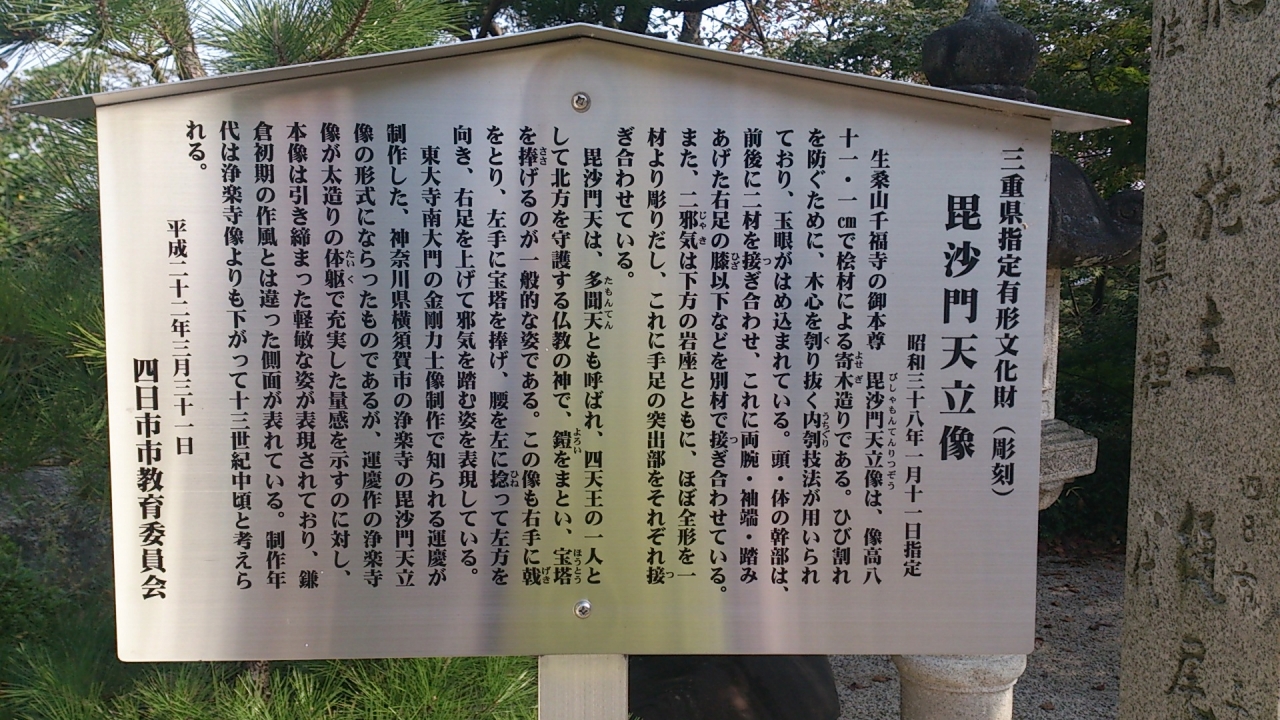 三重県指定有形文化財（彫刻）
毘沙門天立像
昭和三十八年一月十一日指定
生桑山千福寺の御本尊　毘沙門天立像は、像高八
十一・一㎝で桧材による寄木造りである。ひび割れ
を防ぐために、木心を刳り抜く内刳技法が用いられ
ており、玉眼がはめ込まれている。頭・体の幹部は、
前後に二材を接ぎ合わせ、これに両腕・袖端・踏み
あげた右足の膝以下などを別材で接ぎ合わせている。
また、二邪気は下方の岩座とともに、ほぼ全形を一
材より彫りだし、これに手足の突出部をそれぞれ接
ぎ合わせている。
毘沙門天は、多聞天とも呼ばれ、四天王の一人と
して北方を守護する仏教の神で、鎧をまとい、宝塔
を捧げるのが一般的な姿である。この像も右手に戟
をとり、左手に宝塔を捧げ、腰を左に捻って左方を
向き、右足を上げて邪気を踏む姿を表現している。
東大寺南大門の金剛力士像制作で知られる運慶が
制作した、神奈川県横須賀市の浄楽寺の毘沙門天立
像の形式にならったものであるが、運慶作の浄楽寺
像が太造りの体躯で充実した量感を示すのに対し、
本像は引き締まった軽敏な姿が表現されており、鎌
倉初期の作風とは違った側面が表れている。制作年
代は浄楽寺像よりも下がって十三世紀中頃と考えら
れる。
平成二十二年三月三十一日
四日市市教育委員会